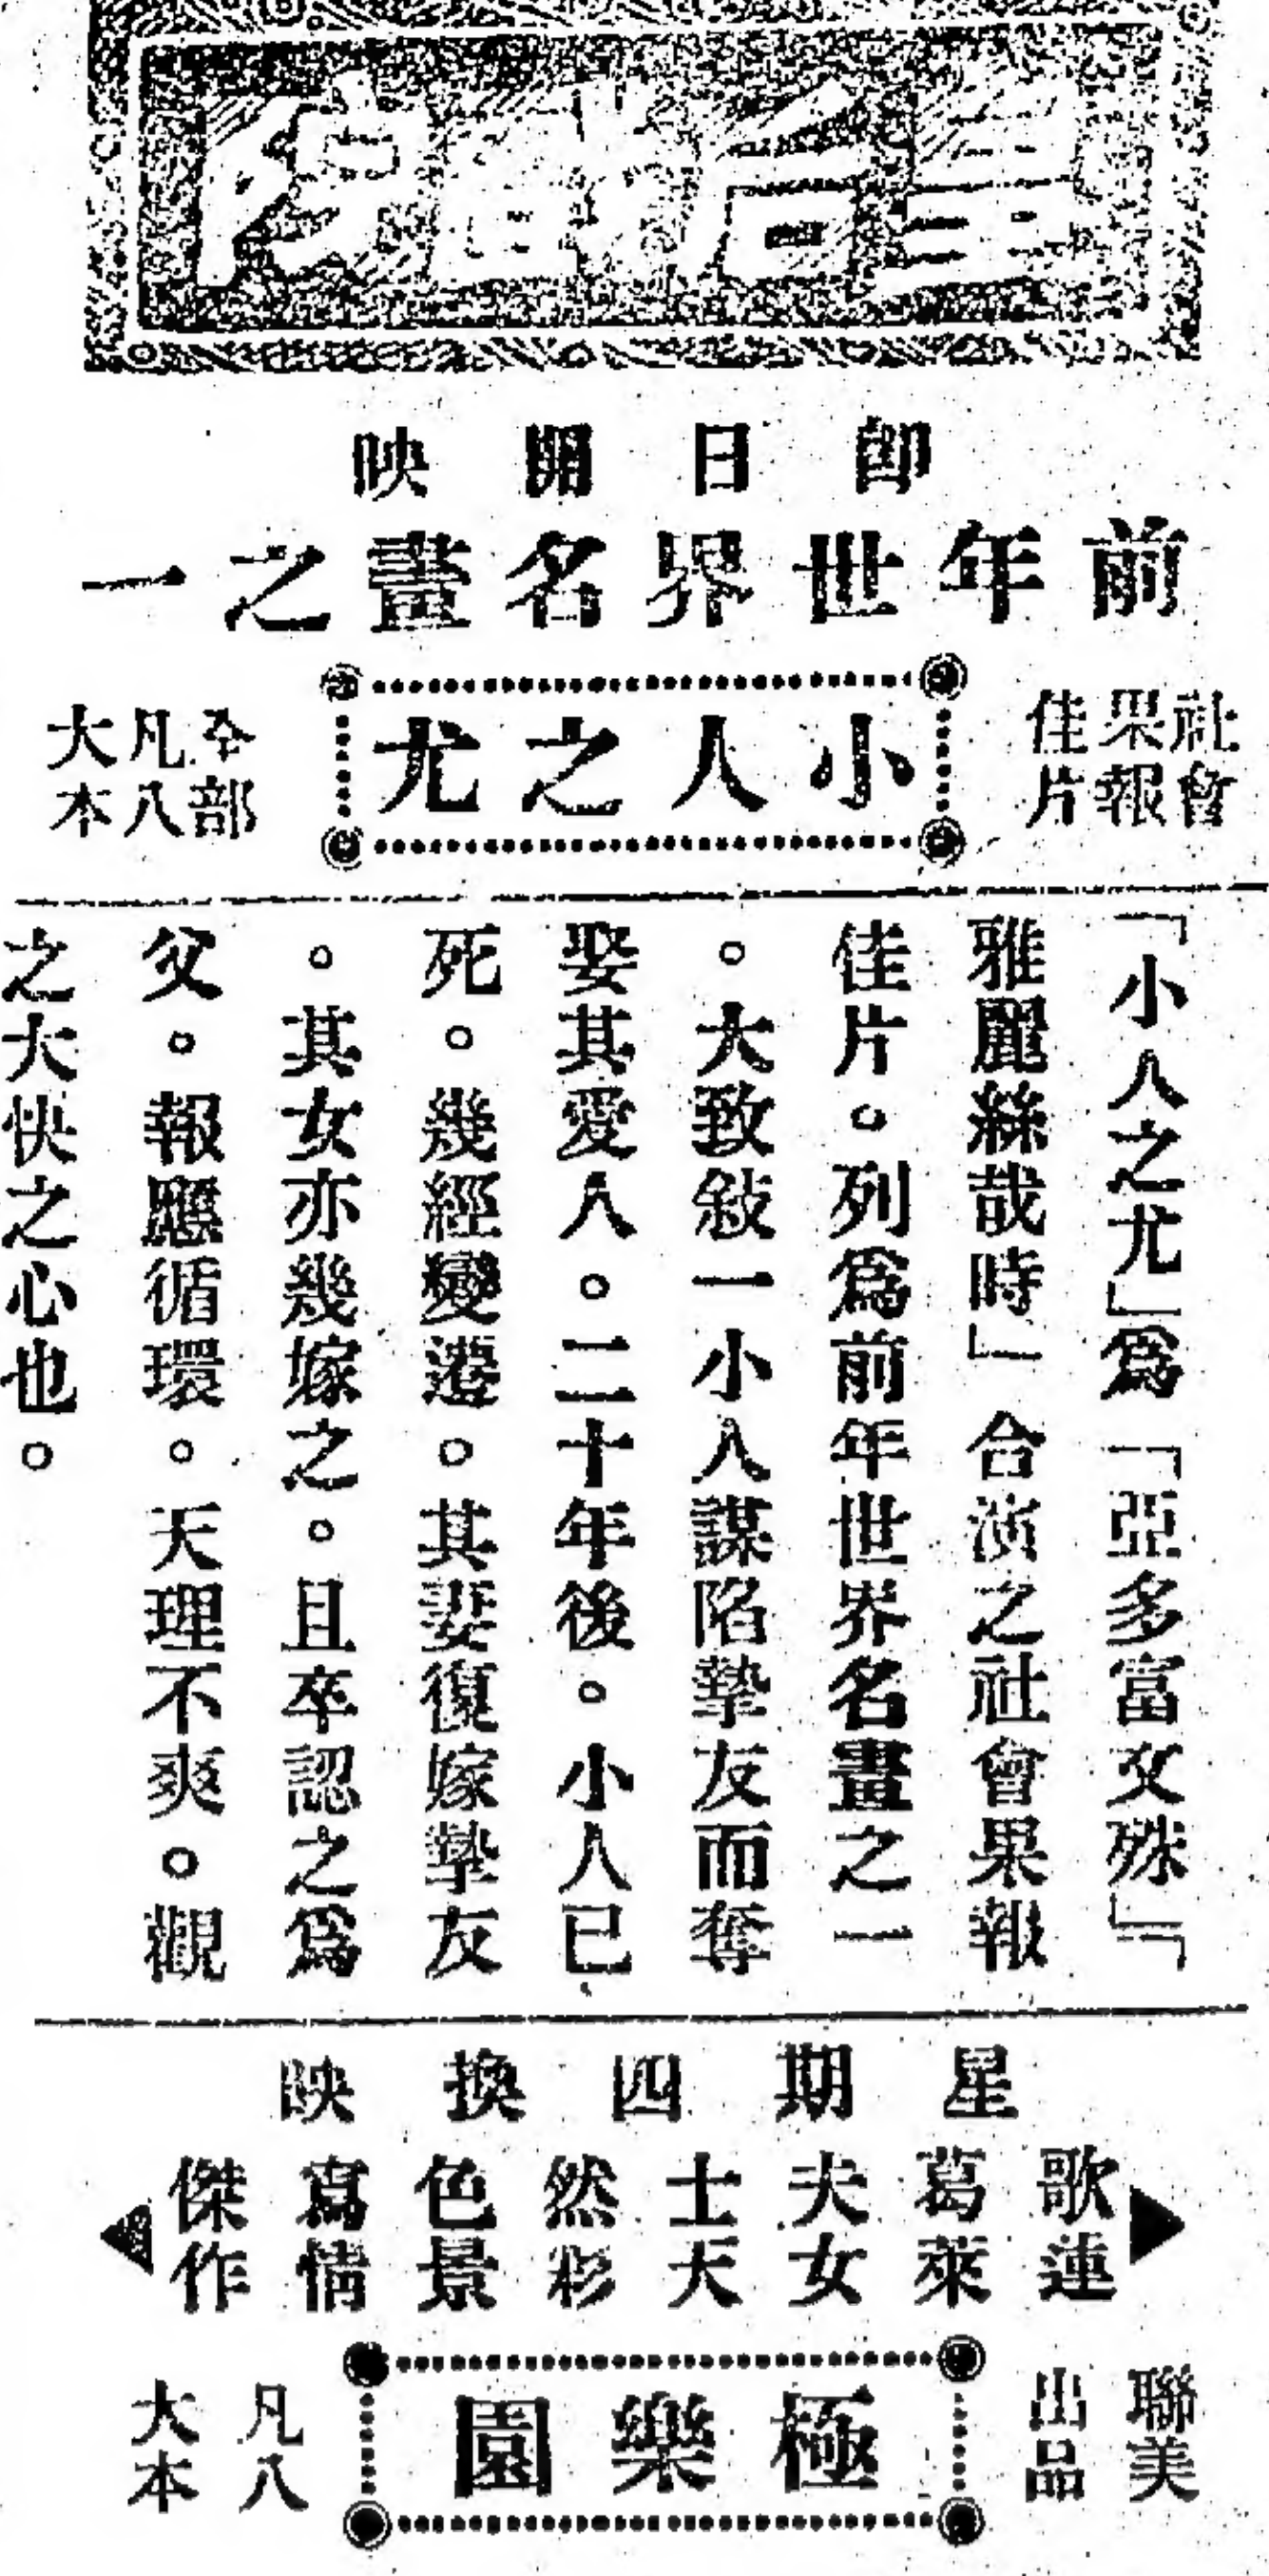 即日開映
前年世界名畫之一
社會果報佳片
小人之尤
全部凡八大本
「小人之尤」爲「亞多富文殊」「
雅麗絲哉時」合演之社會果報
佳片。列爲前年世界名畫之一
。大致敍一小人謀陷摯友而奪
娶其愛人。二十年後。小人已
死。幾經變遷。其妻復嫁摯友
。其女亦幾嫁之。且卒認之爲
父。報應循環。天理不爽。觀
之大快之心也。
星期四換映
歌蓮葛萊夫女士天然彩色景寫情傑作
聯美出品
極樂園
凡八大本